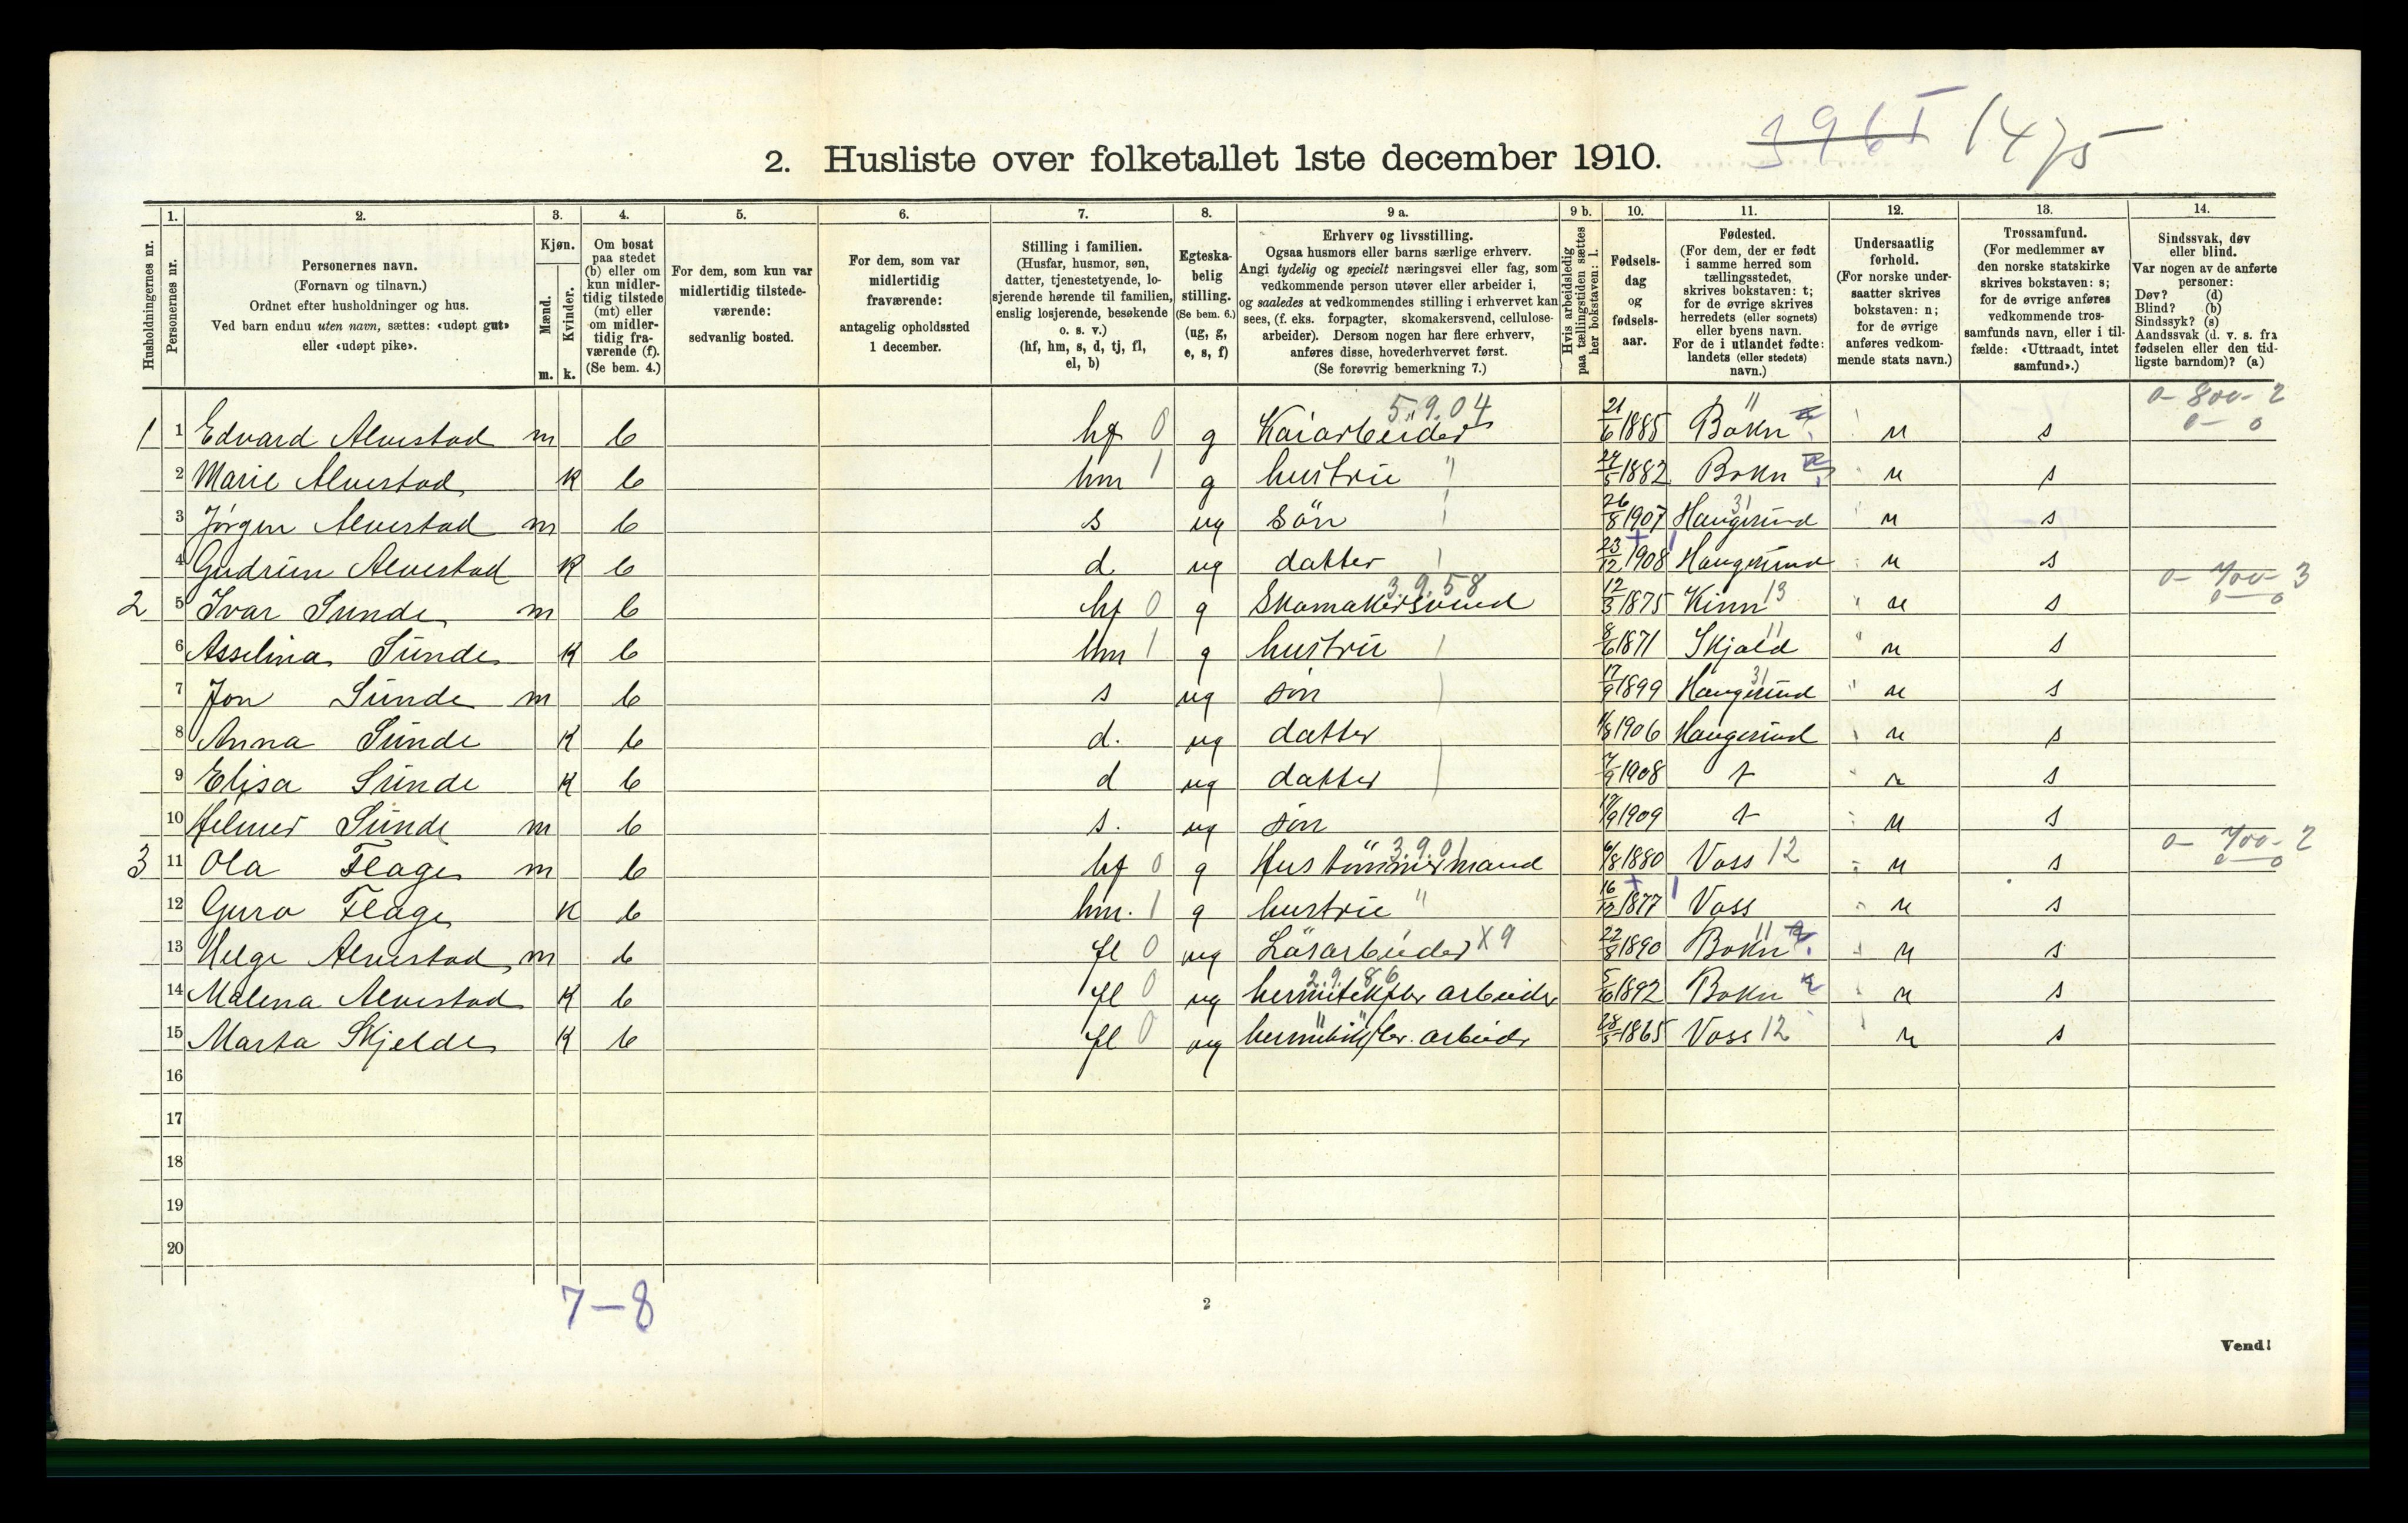 3961 1475
2. Husliste over folketallet 1ste december 1910.
Husholdningernes nr.
1. Personernes nr.
2. Personernes navn.
(Fornavn og tilnavn.)
Ordnet efter husholdninger og hus.
Ved barn endnu uten navn, sættes: «udøpt gut»
eller «udøpt pike».
3. Kjøn.
Mænd. m.
Kvinder. k.
4. Om bosat
paa stedet
(b) eller om
kun midler-
tidig tilstede
(mt) eller
om midler-
tidig fra-
værende (f).
(Se bem. 4.)
5. For dem, som kun var
midlertidig tilstede-
værende:
sedvanlig bosted.
6. For dem, som var
midlertidig
fraværende:
antagelig opholdssted
1 december.
7. Stilling i familien.
(Husfar, husmor, søn,
datter, tjenestetyende, lo-
sjerende hørende til familien,
enslig losjerende, besøkende
o. s. v.)
(hf, hm, s, d, tj, fl,
el, b)
8. Egteska-
belig
stilling.
(Se bem. 6.)
(ug, g,
e, s, f)
9 a. Erhverv og livsstilling.
Ogsaa husmors eller barns særlige erhverv.
Angi tydelig og specielt næringsvei eller fag, som
vedkommende person utøver eller arbeider i,
og saaledes at vedkommendes stilling i erhvervet kan
sees, (f. eks. forpagter, skomakersvend, cellulose-
arbeider). Dersom nogen har flere erhverv,
anføres disse, hovederhvervet først.
(Se forøvrig bemerkning 7.)
9 b. Hvis arbeidsledig
paa tællingstiden sættes
her bokstaven: l.
10. Fødsels-
dag
og
fødsels-
aar.
11. Fødested.
(For dem, der er født
i samme herred som
tællingsstedet,
skrives bokstaven: t;
for de øvrige skrives
herredets (eller sognets)
eller byens navn.
For de i utlandet fødte:
landets (eller stedets)
navn.)
12. Undersaatlig
forhold.
(For norske under-
saatter skrives
bokstaven: n;
for de øvrige
anføres vedkom-
mende stats navn.)
13. Trossamfund.
(For medlemmer av
den norske statskirke
skrives bokstaven: s;
for de øvrige anføres
vedkommende tros-
samfunds navn, eller i til-
fælde: «Uttraadt, intet
samfund».)
14. Sindssvak, døv
eller blind.
Var nogen av de anførte
personer:
Døv? (d)
Blind? (b)
Sindssyk? (s)
Aandssvak (d. v. s. fra
fødselen eller den tid-
ligste barndom)? (a)
5.9.04 11 0-800-2
1 1 Edvard Alvestad m b hf 0 g Kaiarbeider 21/6 1885 Bokn n s 0-0
2 Marie Alvestad k b hm 1 g hustru " 24/5 1882 Bokn n s
3 Jörgen Alvestad m b s ug sön 26/8 1907 Haugesund 31 n s
4 Gudrun Alvestad k b d ug datter 23/12 1908 Haugesund n s
3.9.58 0-700-3
2 5 Ivar Sunde m b hf 0 g Skomakersvend 12/3 1875 Kinn 13 n s 0-0
6 Asselina Sunde k b hm 1 g hustru 8/6 1871 Skjold 11 n s
7 Jon Sunde m b s ug sön 17/9 1899 Haugesund 31 n s
8 Anna Sunde k b d. ug datter 11/8 1906 Haugesund n s
9 Elisa Sunde k b d ug datter 7/9 1908 t n s
10 Helmer Sunde m b s. ug sön 17/9 1909 t n s
3.9.01 0-700-2
3 11 Ola Flage m b hf 0 g Hustömmermand 6/8 1880 Voss 12 n s 0-0
12 Guro Flage k b hm. 1 g hustru " 16/12 1877 Voss n s
13 Helge Alvestad m b fl 0 ug Lösarbeider X9 22/8 1890 Bokn 11 n s
2.9.86
14 Malena Alvestad k b fl 0 ug hermetikfbr arbeider 5/6 1892 Bokn n s
15 Marta Skjelde k b fl 0 ug hermetikfbr. arbeider 28/5 1865 Voss 12 n s
16
17
18
19
20
7-8
2
Vend!